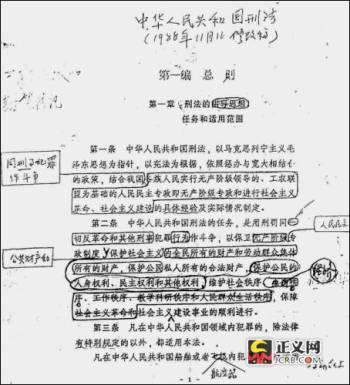 中华人民共和国刑法
(1988年11月16修改稿)
第一编 总 则
第一章 刑法的指导思想
任务和适用范围
第一条 中华人民共和国刑法，以马克思列宁主义毛
泽东思想为指针，以宪法为根据，依照惩办与宽大相结合
的政策，结合我国各族人民实行无产阶级领导的、工农联
盟为基础的人民民主专政即无产阶级专政和进行社会主义
革命、社会主义建设的具体经验及实际情况制定。
第二条 中华人民共和国刑法的任务，是用刑罚同一
切反革命和其他刑事犯罪行为作斗争，以保卫无产阶级专
政制度，保护社会主义的全民所有的财产和劳动群众集体
所有的财产，保护公民私人所有的合法财产，保护公民的
人身权利、民主权利和其他权利，维护社会秩序、生产秩
序、工作秩序、教学科研秩序和人民群众生活秩序，保障
社会主义革命和社会主义建设事业的顺利进行。
第三条 凡在中华人民共和国领域内犯罪的，除法律
有特别规定的以外，都适用本法。
凡在中华人民共和国船舶或者飞机内犯
航空器
同刑事犯罪
作斗争
公共财产和
人民民主
经济
- 1 -
正义网
JCRB.COM